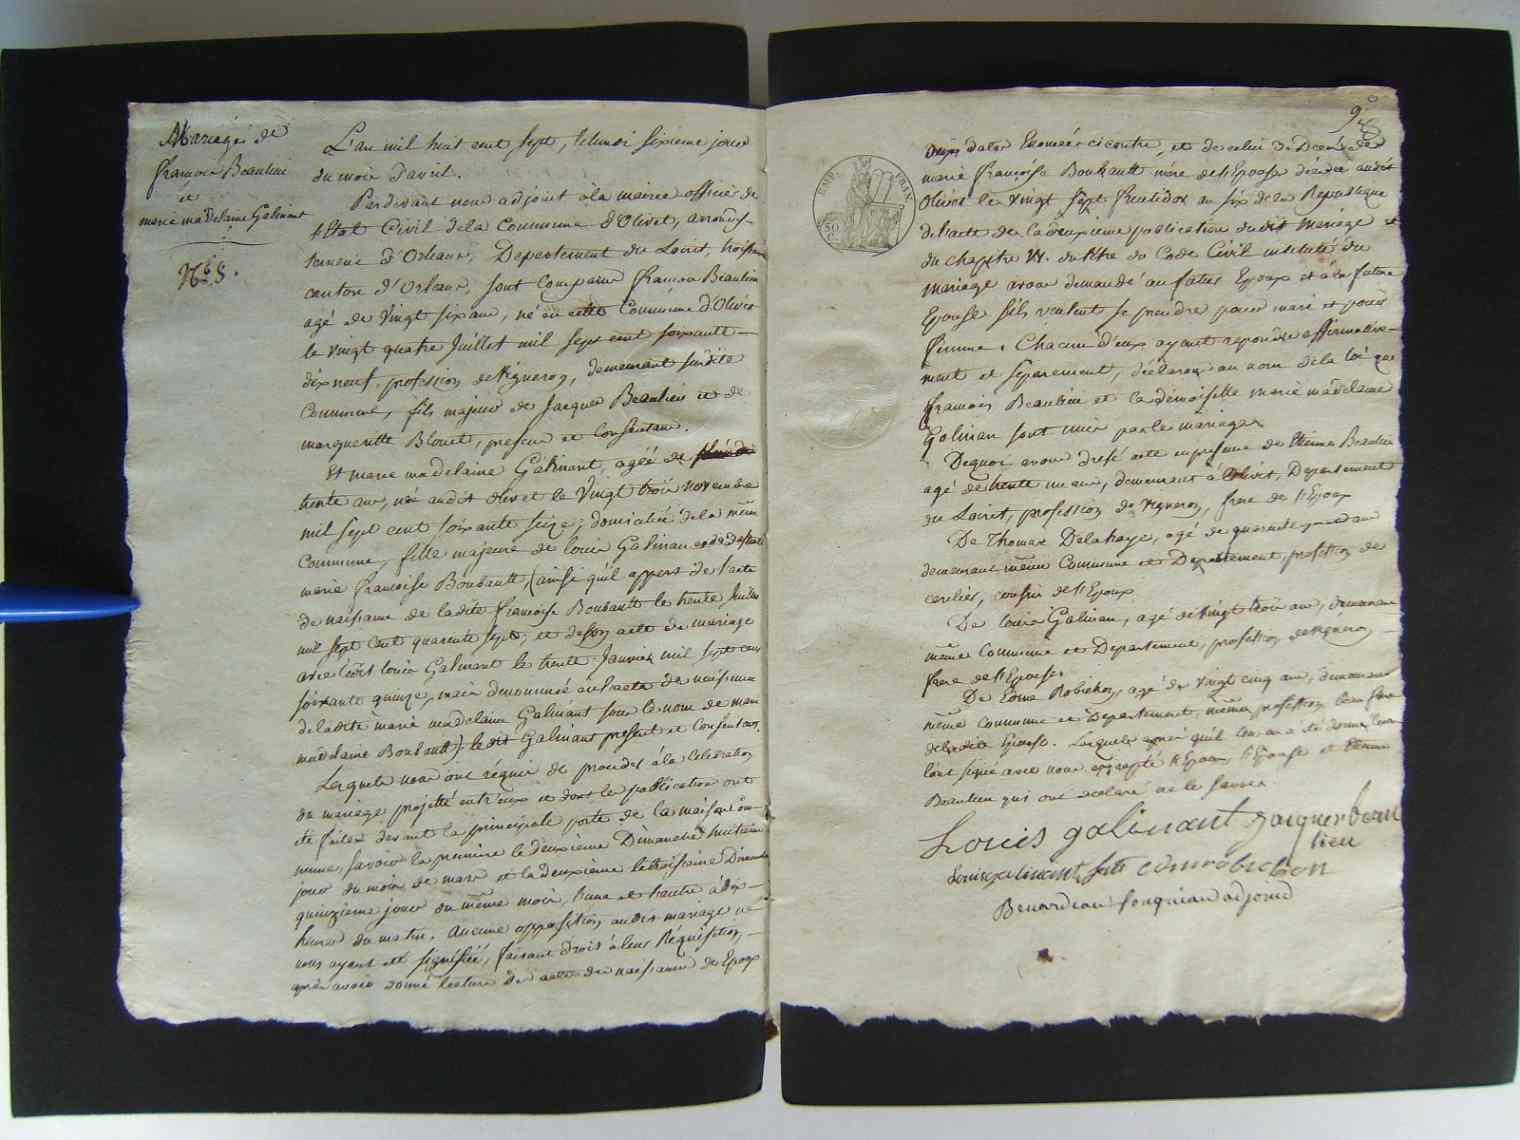 Mariage de
françois Beaulieu
et
marie madelaine Galinant
N° 8.
L'an mil huit cent sept, le lundi sixieme jour
du mois d'avril.
Pardevant nous adjoint à la mairie officier de
l'Etat Civil de la Commune d'Olivet, arrondis-
sement d'Orleans, Departement du Loiret, troisieme
canton d'Orleans, sont comparus françois Beaulieu
agé de vingt six ans, né en cette Commune d'Olivet
le vingt quatre Juillet mil sept cent soixante
dix neuf, profession de vigneron, demeurant susdite
Commune, fils majeur de Jacques Beaulieu et de
margueritte Blouet, presens et consentans.
Et marie madelaine Galinant, agée de
trente ans, née audit olivet le vingt trois novembre
mil sept cent soixante seize, domiciliée de la même
Commune, fille majeure de louis Galinan et de défunte
marie françoise Boubault (ainsi qu'il appert de l'acte
de naissance de ladite françoise Boubault le trente
mil sept cent quarante sept, et de son acte de mariage
avec ledit louis Galinant le trente Janvier mil sept cent
soixante quinze, mais denommée en l'acte de naissance
de ladite marie madelaine Galinant sous le nom de marie
madelaine Boubault) le dit Galinant present et consentant.
Lesquels nous ont requis de proceder à la celebration
du mariage projetté entr'eux et dont les publications ont
été faites devant la principale porte de la maison Com-
mune, savoir la premiere le deuxieme Dimanche huitieme
jour du mois de mars et la deuxieme le troisieme Dimanche
quinzieme jour du même mois, l'une et l'autre à dix
heures du matin. Aucune opposition audit mariage ne
nous ayant été signifiée, faisant droit à leur Réquisition,
après avoir donné lecture des actes de naissance des Epoux
9
TIMP. FRAN.
50
dates Enoncées ci contre, et de celui de Deces de
marie françoise Boubault mère de l'Epouse décedée audit
olivet le vingt sept fructidor an six de la Republique
de l'acte de la deuxieme publication dudit mariage et
du chapitre VI. du titre du Code Civil intitulé du
mariage avons demandé au futur Epoux et à la future
Epouse s'ils veulent se prendre pour mari et pour
femme. Chacun d'eux ayant repondu affirmative-
ment et séparement, déclarons au nom de la loi que
françois Beaulieu et la demoiselle marie madelaine
Galinan sont unis par le mariage.
De quoi avons dressé acte en presence de Etienne Beaulieu
agé de trente un ans, demeurant à Olivet, Departement
du Loiret, profession de vigneron, frere de l'Epoux
De Thomas Delahaye, agé de quarante ans
demeurant même Commune et Departement, profession de
cerclier, cousin de l'Epoux
De louis Galinan, agé de vingt trois ans, demeurant
même Commune et Departement, profession de vigneron
frere de l'Epouse.
De Côme Robichon, agé de vingt cinq ans, demeurant
même commune et Departement, même profession beau frere
de ladite Epouse. Lesquels après qu'il leur en a été donné lecture
l'ont signé avec nous excepté l'Epoux, l'Epouse et Etienne
Beaulieu qui ont declaré ne le savoir
Louis galinant Jacques beau
lieu
Louis galinant fils Comerobichon
adjoint